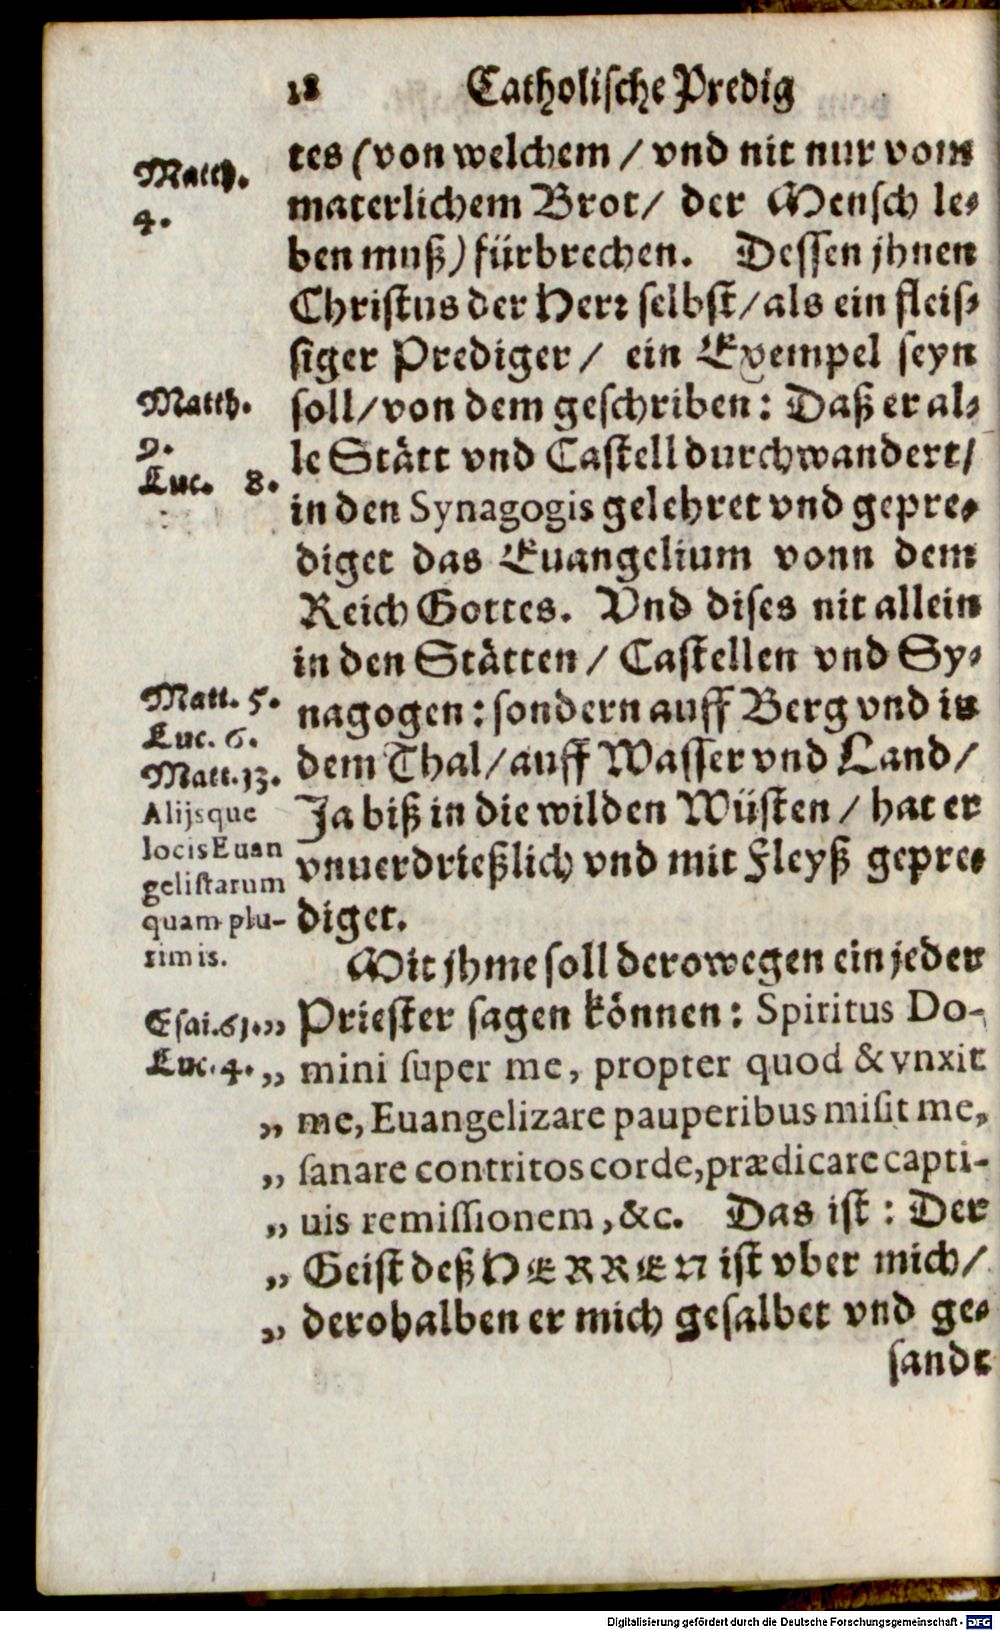 18 Catholische Predig
tes (von welchem / vnd nit nur vom
materlichem Brot / der Mensch le-
ben muß) fürbrechen. Dessen jhnen
Christus der Herr selbst / als ein fleis-
siger Prediger / ein Exempel seyn
soll / von dem geschriben: Daß er al-
le Stätt vnd Castell durchwandert /
in den Synagogis gelehret vnd gepre-
diget das Euangelium vonn dem
Reich Gottes. Vnd dises nit allein
in den Stätten / Castellen vnd Sy-
nagogen: sondern auff Berg vnd in
dem Thal / auff Wasser vnd Land /
Ja biß in die wilden Wüsten / hat er
vnuerdrießlich vnd mit Fleyß gepre-
diget.
Mit jhme soll derowegen ein jeder
Priester sagen können: Spiritus Do-
„ mini super me, propter quod & vnxit
„ me, Euangelizare pauperibus misit me,
„ sanare contritos corde, prædicare capti-
„ uis remissionem, &c. Das ist: Der
„ Geist deß HERREN ist vber mich /
„ derohalben er mich gesalbet vnd ge-
sandt
Matth.
4.
Matth.
9.
Luc. 8.
Matt. 5.
Luc. 6.
Matt. 13.
Alijsque
locis Euan
gelistarum
quam plu-
rimis.
Esai. 61. „
Luc. 4.
Digitalisierung gefördert durch die Deutsche Forschungsgemeinschaft - DFG